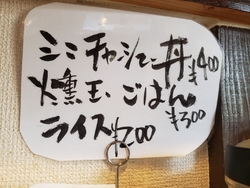 ミニチャーシュー丼 ¥400
燻玉ごはん ¥300
ライス ¥200